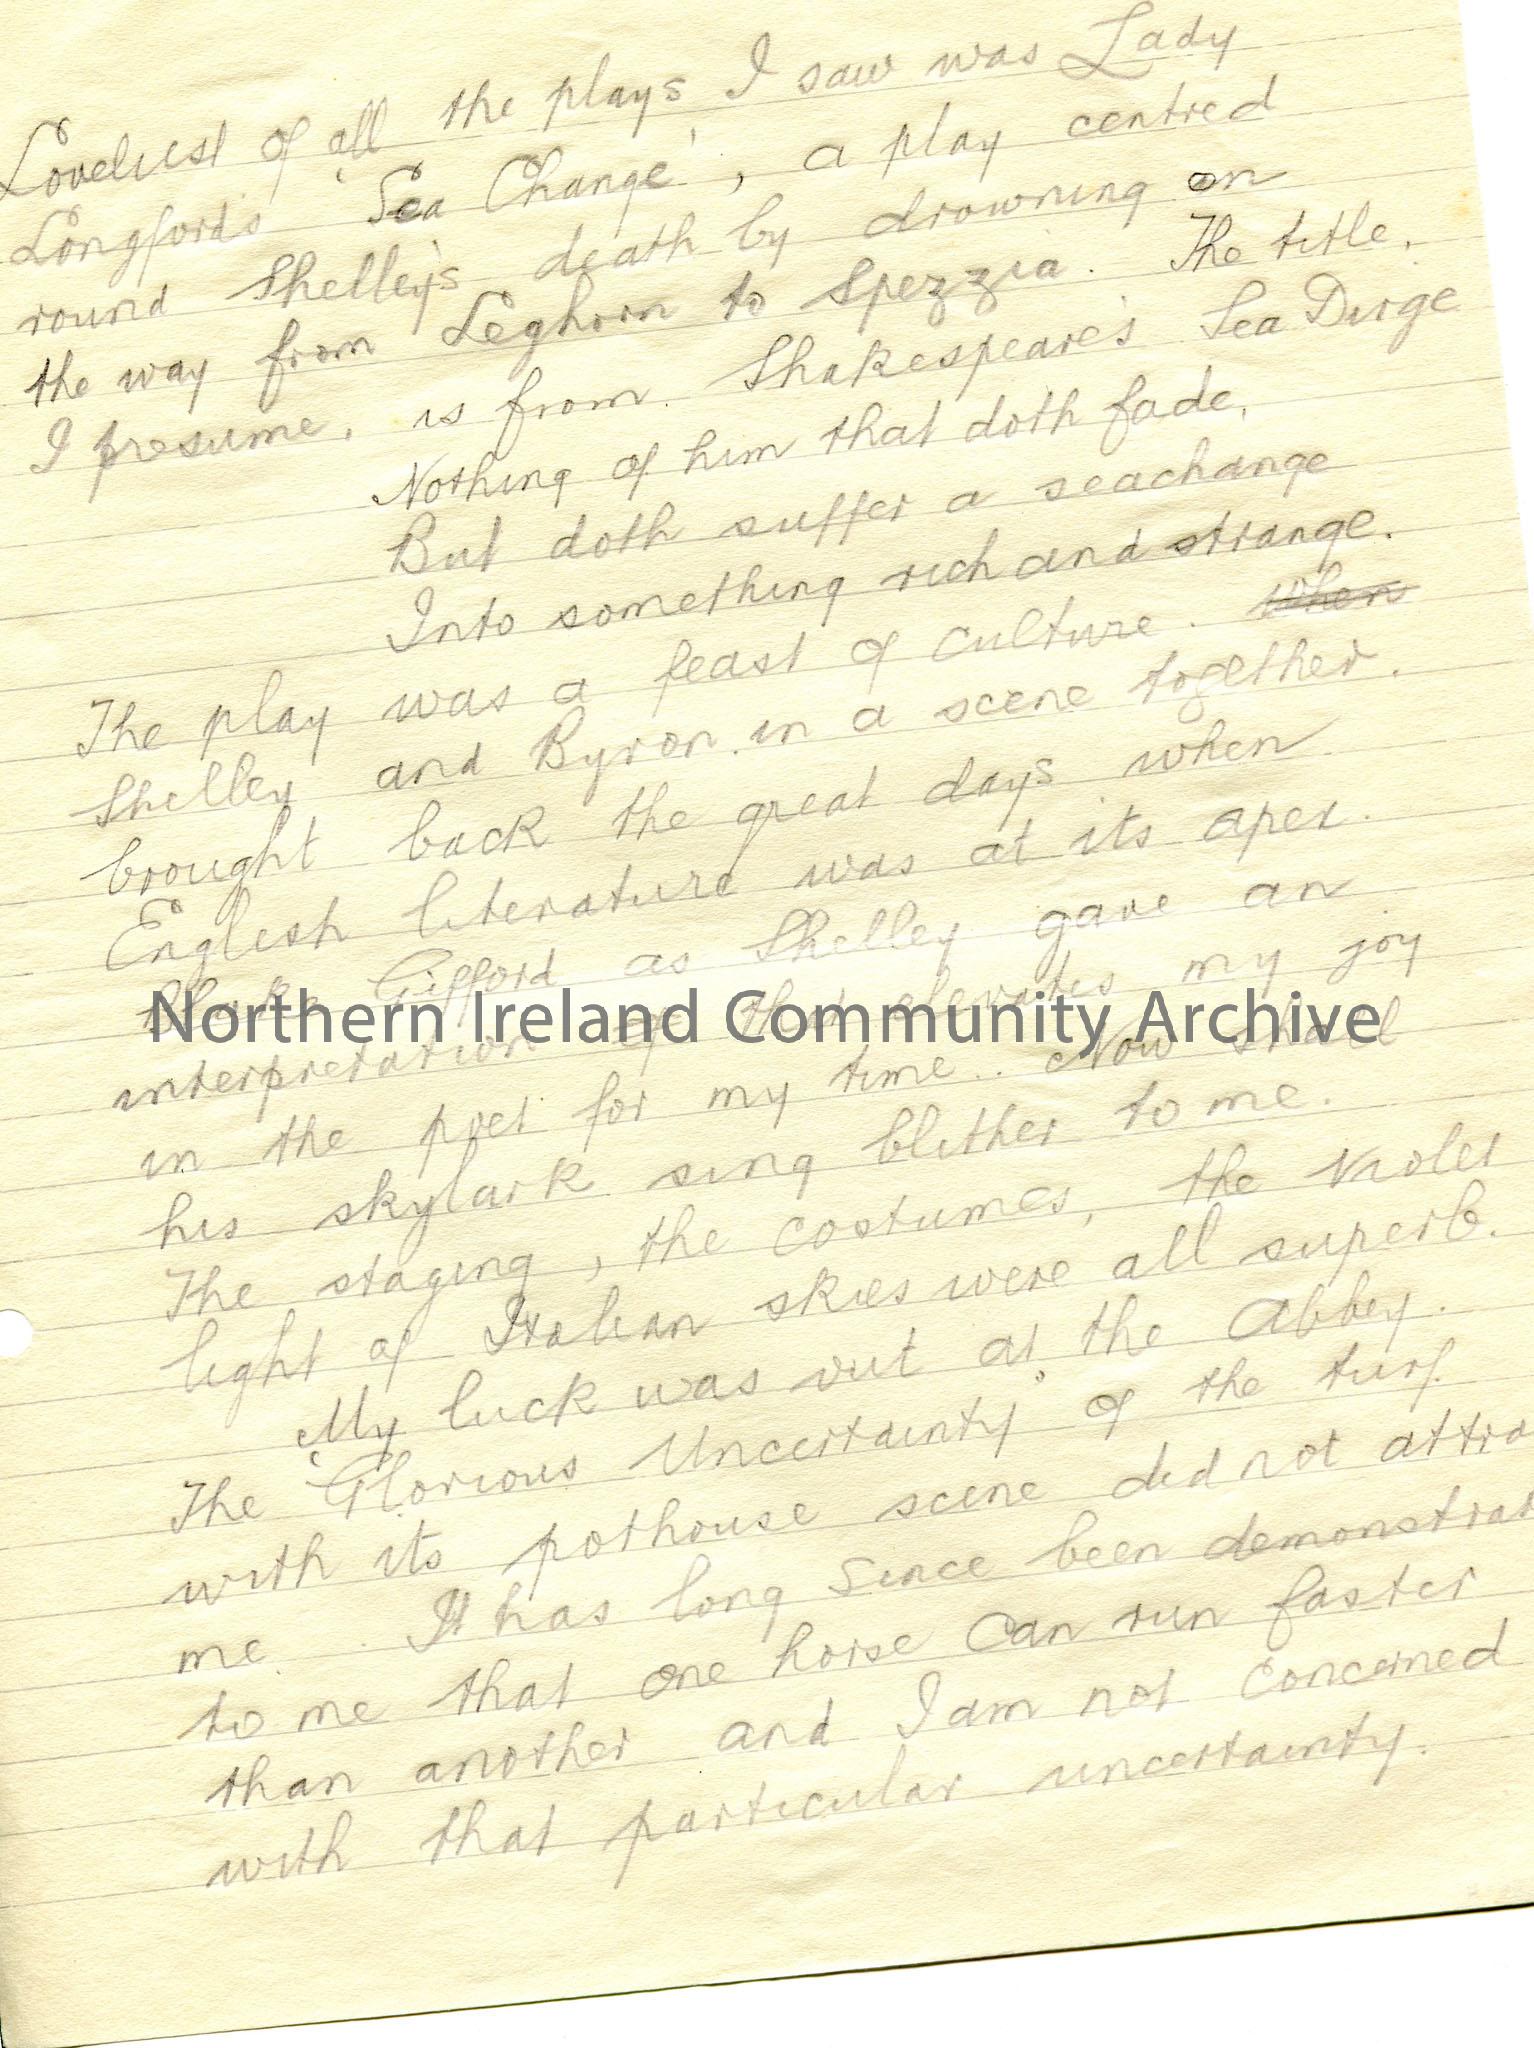 Loveliest of all the plays I saw was Lady
Longford's 'Sea Change', a play centred
round Shelley's death by drowning on
the way from Leghorn to Spezzia. The title,
I presume, is from Shakespeare's Sea Dirge
Nothing of him that doth fade,
But doth suffer a seachange
Into something rich and strange.
The play was a feast of culture. when
Shelley and Byron in a scene together.
brought back the great days when
English literature was at its apex.
Gifford as Shelley gave an
interpretation of that elevates my joy
in the poet for my time. Now shall
his skylark sing blither to me.
The staging, the costumes, the violet
light of Italian skies were all superb.
My luck was out at the Abbey.
The 'Glorious Uncertainty' of the turf
with its pothouse scene did not attra
me. It has long since been demonstrat
to me that one horse can run faster
than another and I am not concerned
with that particular uncertainty.
Northern Ireland Community Archive